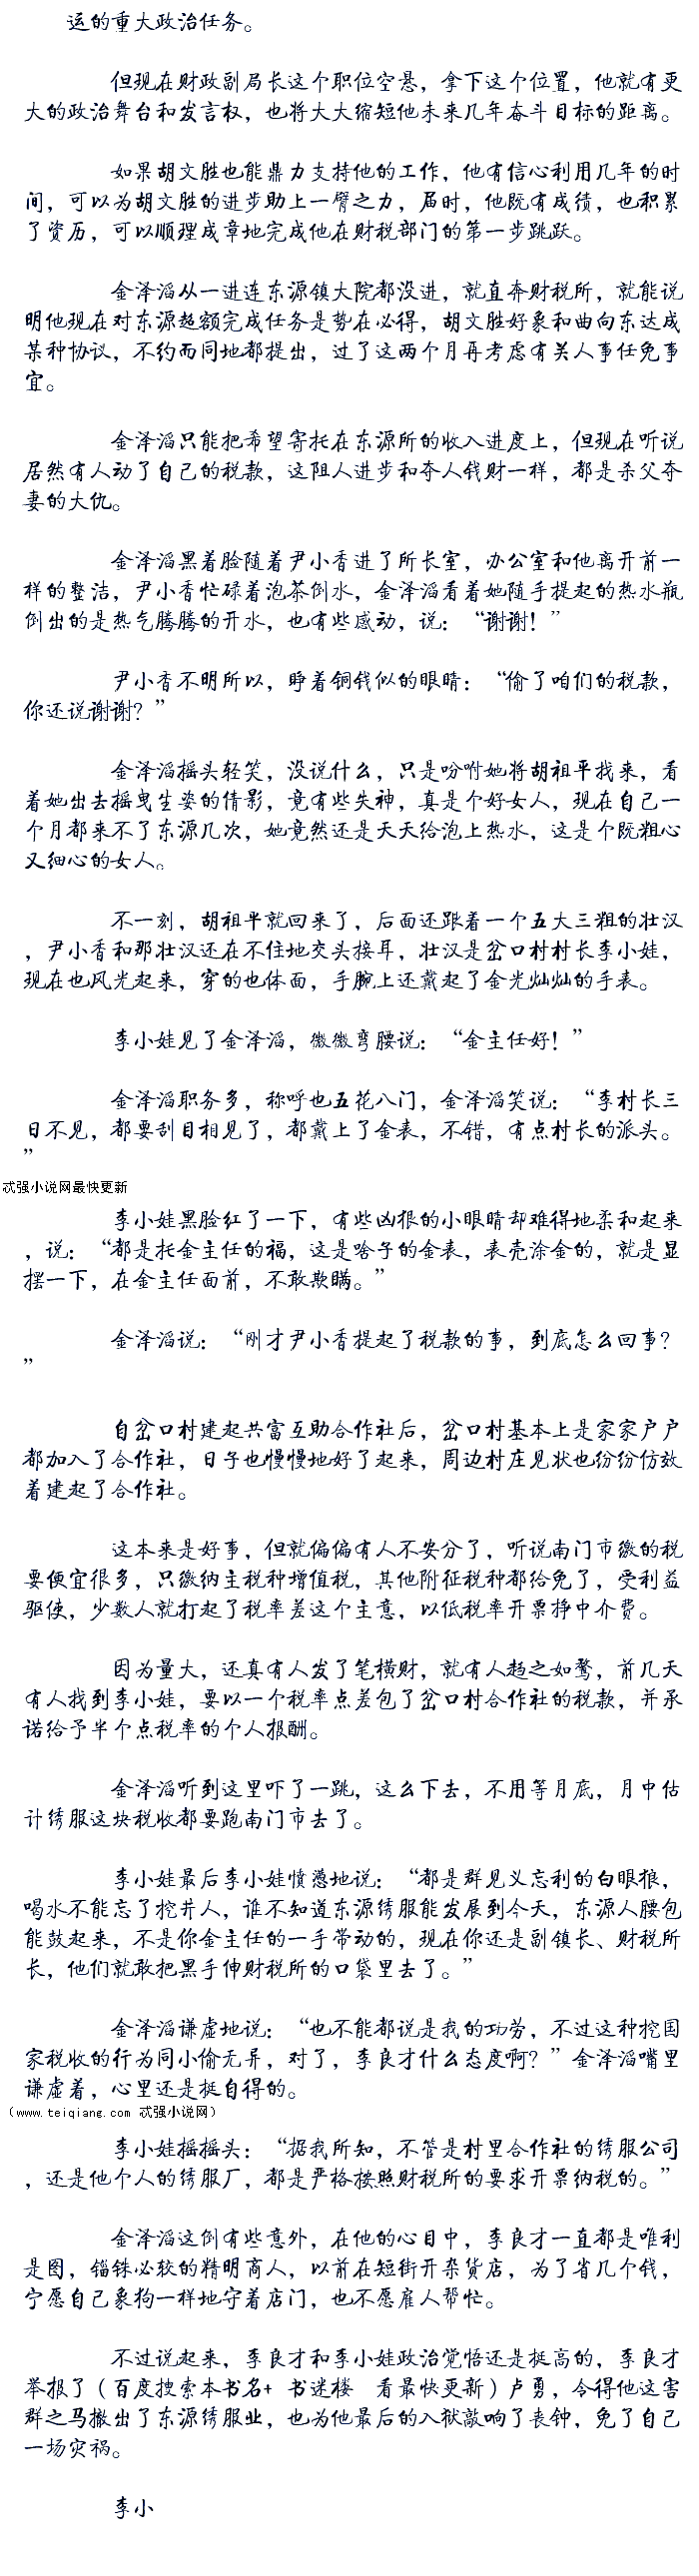 运的重大政治任务。
但现在财政副局长这个职位空悬，拿下这个位置，他就有更
大的政治舞台和发言权，也将大大缩短他未来几年奋斗目标的距离。
如果胡文胜也能鼎力支持他的工作，他有信心利用几年的时
间，可以为胡文胜的进步助上一臂之力，届时，他既有成绩，也积累
了资历，可以顺理成章地完成他在财税部门的第一步跳跃。
金泽滔从一进连东源镇大院都没进，就直奔财税所，就能说
明他现在对东源超额完成任务是势在必得，胡文胜好象和曲向东达成
某种协议，不约而同地都提出，过了这两个月再考虑有关人事任免事
宜。
金泽滔只能把希望寄托在东源所的收入进度上，但现在听说
居然有人动了自己的税款，这阻人进步和夺人钱财一样，都是杀父夺
妻的大仇。
金泽滔黑着脸随着尹小香进了所长室，办公室和他离开前一
样的整洁，尹小香忙碌着泡茶倒水，金泽滔看着她随手提起的热水瓶
倒出的是热气腾腾的开水，也有些感动，说：“谢谢！”
尹小香不明所以，睁着铜钱似的眼睛：“偷了咱们的税款，
你还说谢谢？”
金泽滔摇头轻笑，没说什么，只是吩咐她将胡祖平找来，看
着她出去摇曳生姿的倩影，竟有些失神，真是个好女人，现在自己一
个月都来不了东源几次，她竟然还是天天给泡上热水，这是个既粗心
又细心的女人。
不一刻，胡祖平就回来了，后面还跟着一个五大三粗的壮汉
，尹小香和那壮汉还在不住地交头接耳，壮汉是岔口村村长李小娃，
现在也风光起来，穿的也体面，手腕上还戴起了金光灿灿的手表。
李小娃见了金泽滔，微微弯腰说：“金主任好！”
金泽滔职务多，称呼也五花八门，金泽滔笑说：“李村长三
日不见，都要刮目相见了，都戴上了金表，不错，有点村长的派头。
”
忒强小说网最快更新
李小娃黑脸红了一下，有些凶狠的小眼睛却难得地柔和起来
，说：“都是托金主任的福，这是啥子的金表，表壳涂金的，就是显
摆一下，在金主任面前，不敢欺瞒。”
金泽滔说：“刚才尹小香提起了税款的事，到底怎么回事？
”
自岔口村建起共富互助合作社后，岔口村基本上是家家户户
都加入了合作社，日子也慢慢地好了起来，周边村庄见状也纷纷仿效
着建起了合作社。
这本来是好事，但就偏偏有人不安分了，听说南门市缴的税
要便宜很多，只缴纳主税种增值税，其他附征税种都给免了，受利益
驱使，少数人就打起了税率差这个主意，以低税率开票挣中介费。
因为量大，还真有人发了笔横财，就有人趋之如鹜，前几天
有人找到李小娃，要以一个税率点差包了岔口村合作社的税款，并承
诺给予半个点税率的个人报酬。
金泽滔听到这里吓了一跳，这么下去，不用等月底，月中估
计绣服这块税收都要跑南门市去了。
李小娃最后李小娃愤懑地说：“都是群见义忘利的白眼狼，
喝水不能忘了挖井人，谁不知道东源绣服能发展到今天，东源人腰包
能鼓起来，不是你金主任的一手带动的，现在你还是副镇长、财税所
长，他们就敢把黑手伸财税所的口袋里去了。”
金泽滔谦虚地说：“也不能都说是我的功劳，不过这种挖国
家税收的行为同小偷无异，对了，李良才什么态度啊？”金泽滔嘴里
谦虚着，心里还是挺自得的。
（www.teiqiang.com 忒强小说网）
李小娃摇摇头：“据我所知，不管是村里合作社的绣服公司
，还是他个人的绣服厂，都是严格按照财税所的要求开票纳税的。”
金泽滔这倒有些意外，在他的心目中，李良才一直都是唯利
是图，锱铢必较的精明商人，以前在短街开杂货店，为了省几个钱，
宁愿自己象狗一样地守着店门，也不愿雇人帮忙。
不过说起来，李良才和李小娃政治觉悟还是挺高的，李良才
举报了（百度搜索本书名+ 书迷楼 看最快更新）卢勇，令得他这害
群之马撤出了东源绣服业，也为他最后的入狱敲响了丧钟，免了自己
一场灾祸。
李小